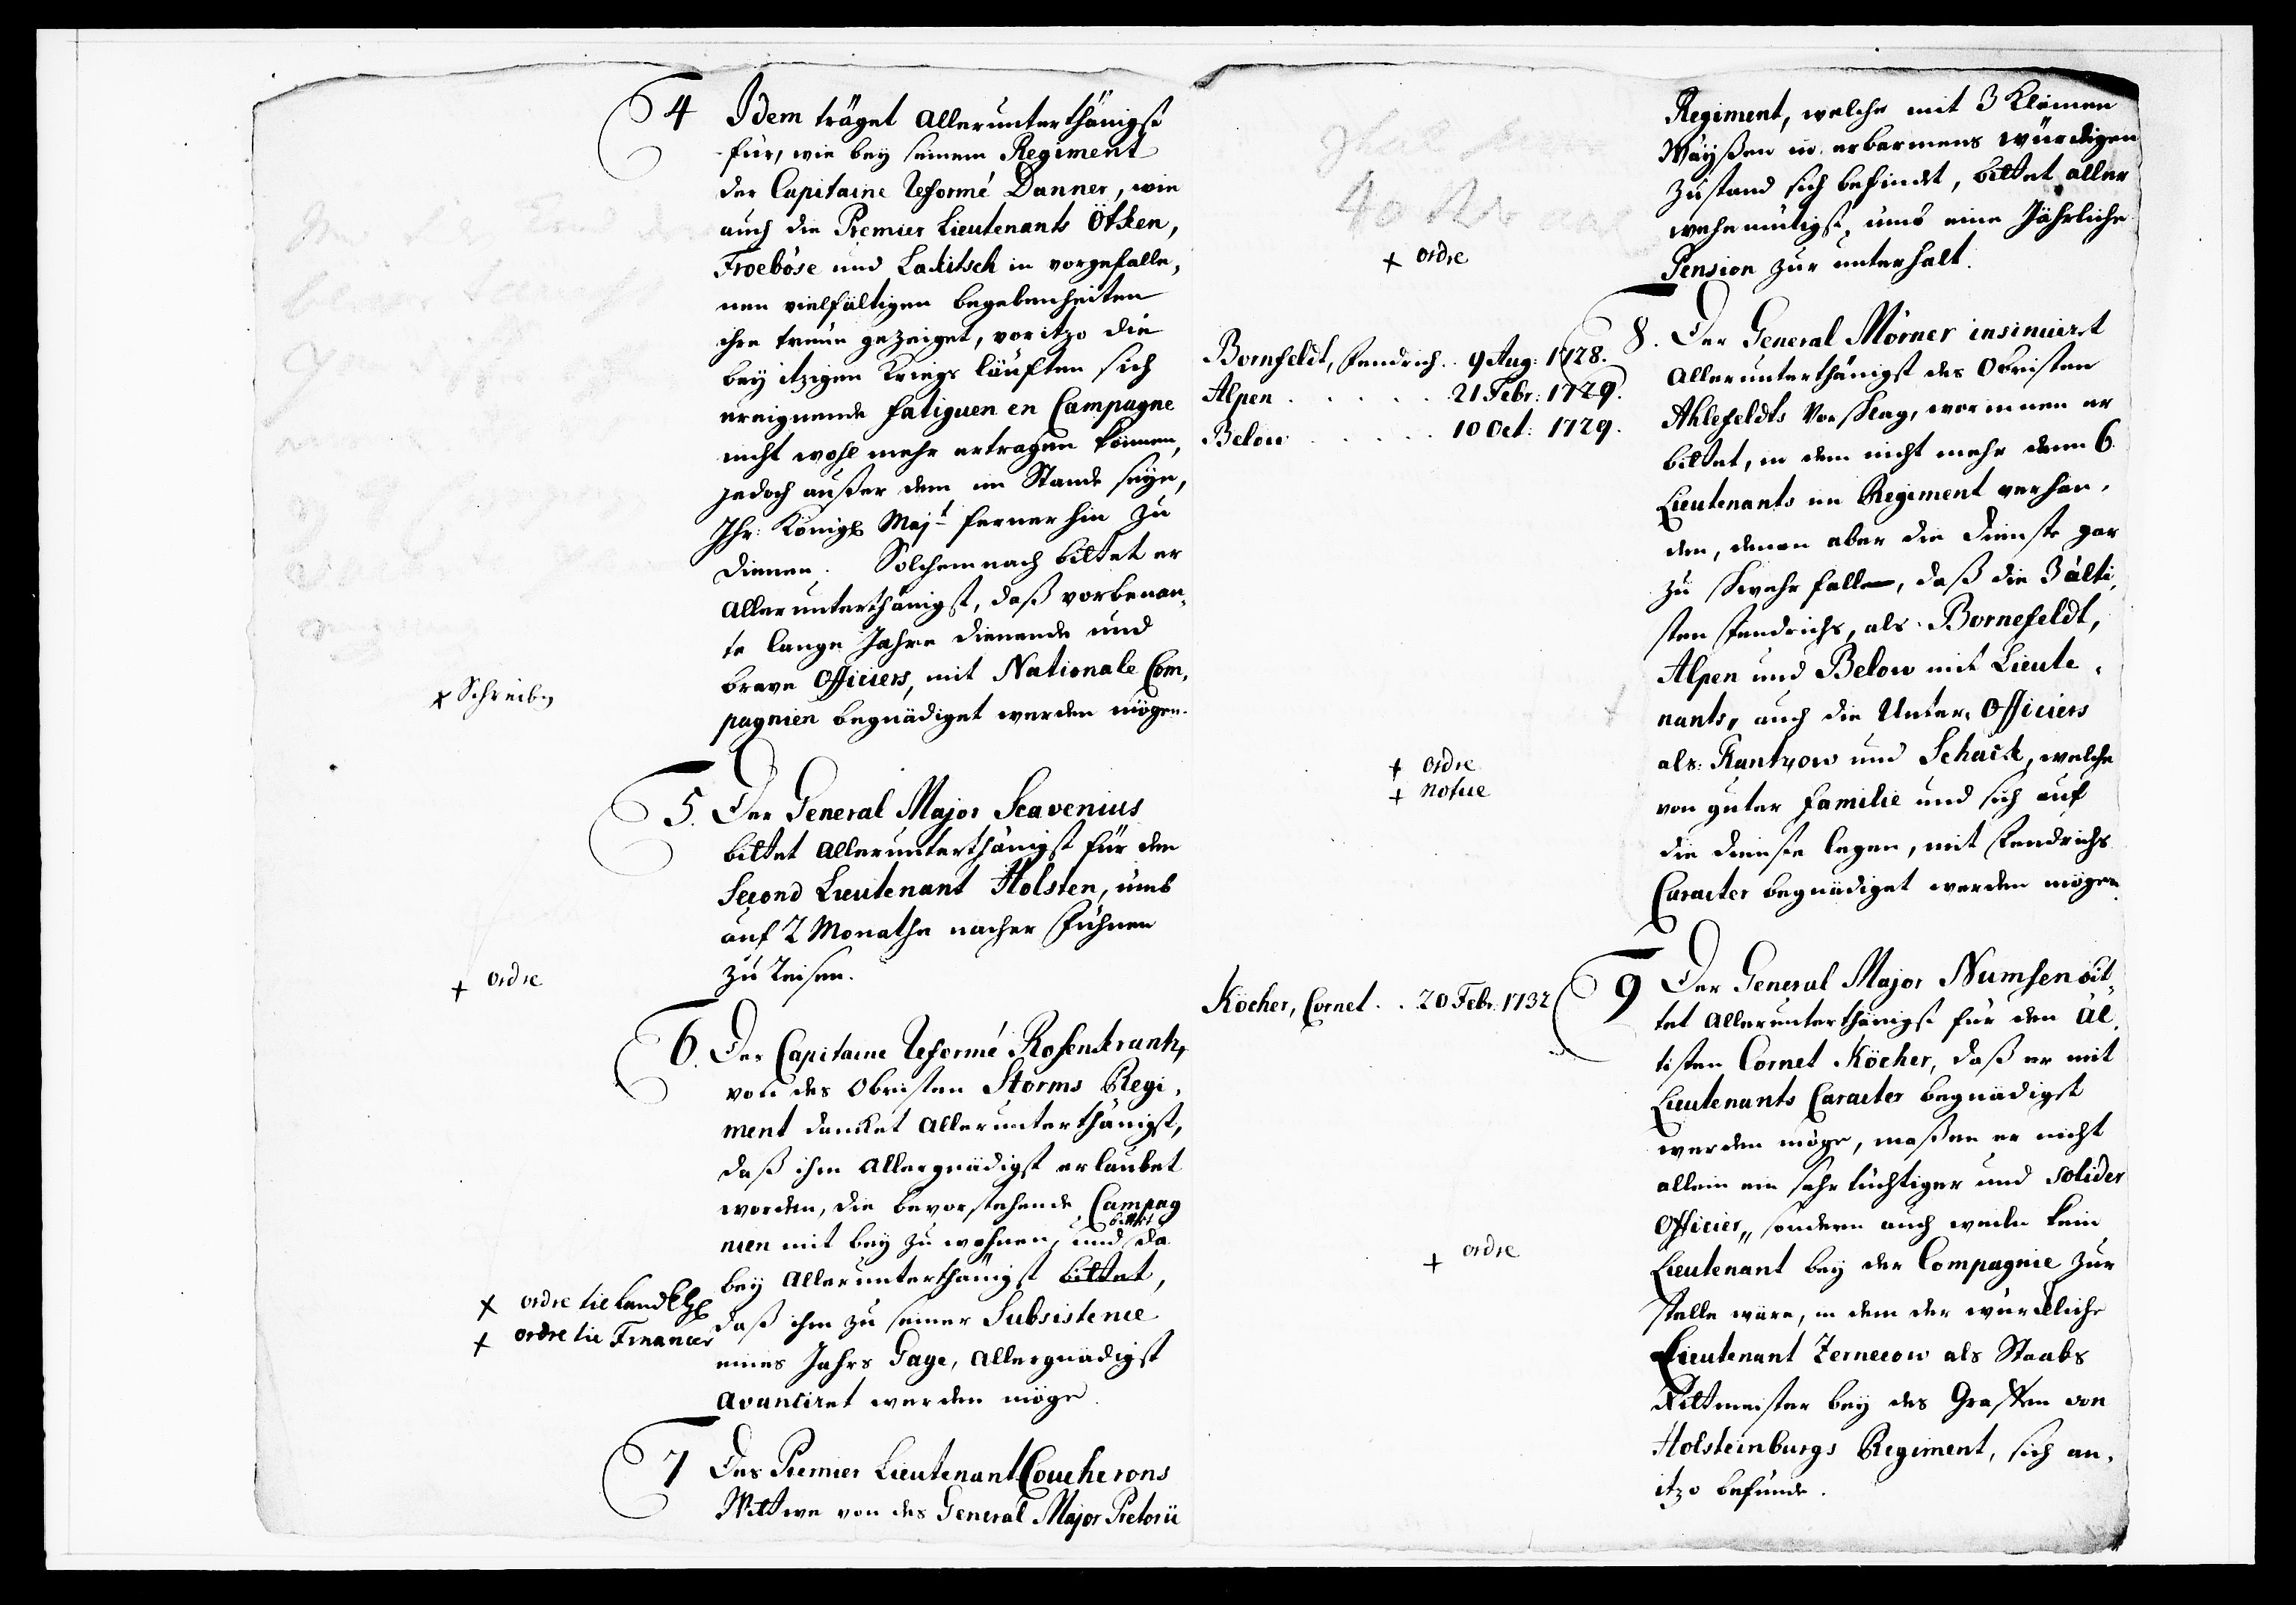 4 Idem träget allerunterthänigst
für, wie bey seinem Regiment
der Capitaine reformé Danner, wie
auch die Premier Lieutenants Ötken,
Froeböse und Lakitsch in vorgefalle,
nen vielfältigen begebenheiten
ihre treüe gezeiget, vor itzo die
bey itzigen Kriegs läufften sich
ereignende fatiguen en Campagne
nicht wohl mehr ertragen können,
jedoch außer dem im Stande seyn,
Ihr: Königl Majt fernerhin zu
dienen. Solchemnach bittet er
allerunterthänigst, daß vorbenan,
te lange Jahre dienende und
brave Officiers, mit Nationale Com,
pagnien begnädiget werden mögen.
+ Schreiben
5. Der General Major Scavenius
bittet allerunterthänigst für den
Second Lieutenant Holsten, umb
auf 2 Monathe nacher Fühnen
zu reisen.
+ ordre
6. Der Capitaine reformé Rosenkrantz,
von des Obristen Storms Regi,
ment dancket allerunterthänigst,
daß ihm allergnädigst erlaubet
worden, die bevorstehende Campag
nien mit bey zu wohnen, und bittet da
bey allerunterthänigst bittet,
daß ihm zu seiner Subsistence
eines Jahrs Gage, allergnädigst
avanciret werden möge.
+ ordre til
+ ordre til Financer
7 Des Premier Lieutenant Coucherons
Wittwe von des General Major Pretorii
Regiment, welche mit 3 Kleinen
Wäysen in erbarmens würdigen
zustand sich befindet, bittet aller
wehemütigst, umb eine Jährliche
Pension zur unterhalt.
+ ordre
8. Der General Mörner insinuiret
allerunterthänigst des Obristen
Ahlefeldts Vorschlag, worinnen er
bittet, in dem nicht mehr denn 6
Lieutenants im Regiment verhan,
den, denen aber die Dienste gar
zu schwehr fallen, daß die 3 älti,
sten Fendrichs, als Bornefeldt,
Alpen und Below mit Lieute,
nants, auch die Unter, Officiers
als: Rantzow und Schack, welche
von guter familie und sich auf
die dienste legen, mit Fendrichs
Caracter begnädiget werden mögen.
Bornfeldt, Fendrich. . 9 Aug: 1728.
Alpen . . . . . . 21 Febr: 1729.
Below . . . . . 10 Oct: 1729.
+ ordre
+ notice
9 Der General Major Numsen bit,
tet allerunterthänigst für den äl,
tisten Cornet Köcher, daß er mit
Lieutenants Caracter begnädigst
werden möge, maßen er nicht
allein ein sehr tüchtiger und solider
Officier, sondern auch weiln kein
Lieutenant bey der Compagnie zur
stelle wäre, in dem der würckliche
Lieutenant Zernecow als Staabs
Rittmeister bey des Graffen von
Holsteinburgs Regiment, sich an,
itzo befünde.
Köcher, Cornet . . 20 Febr. 1732
+ ordre